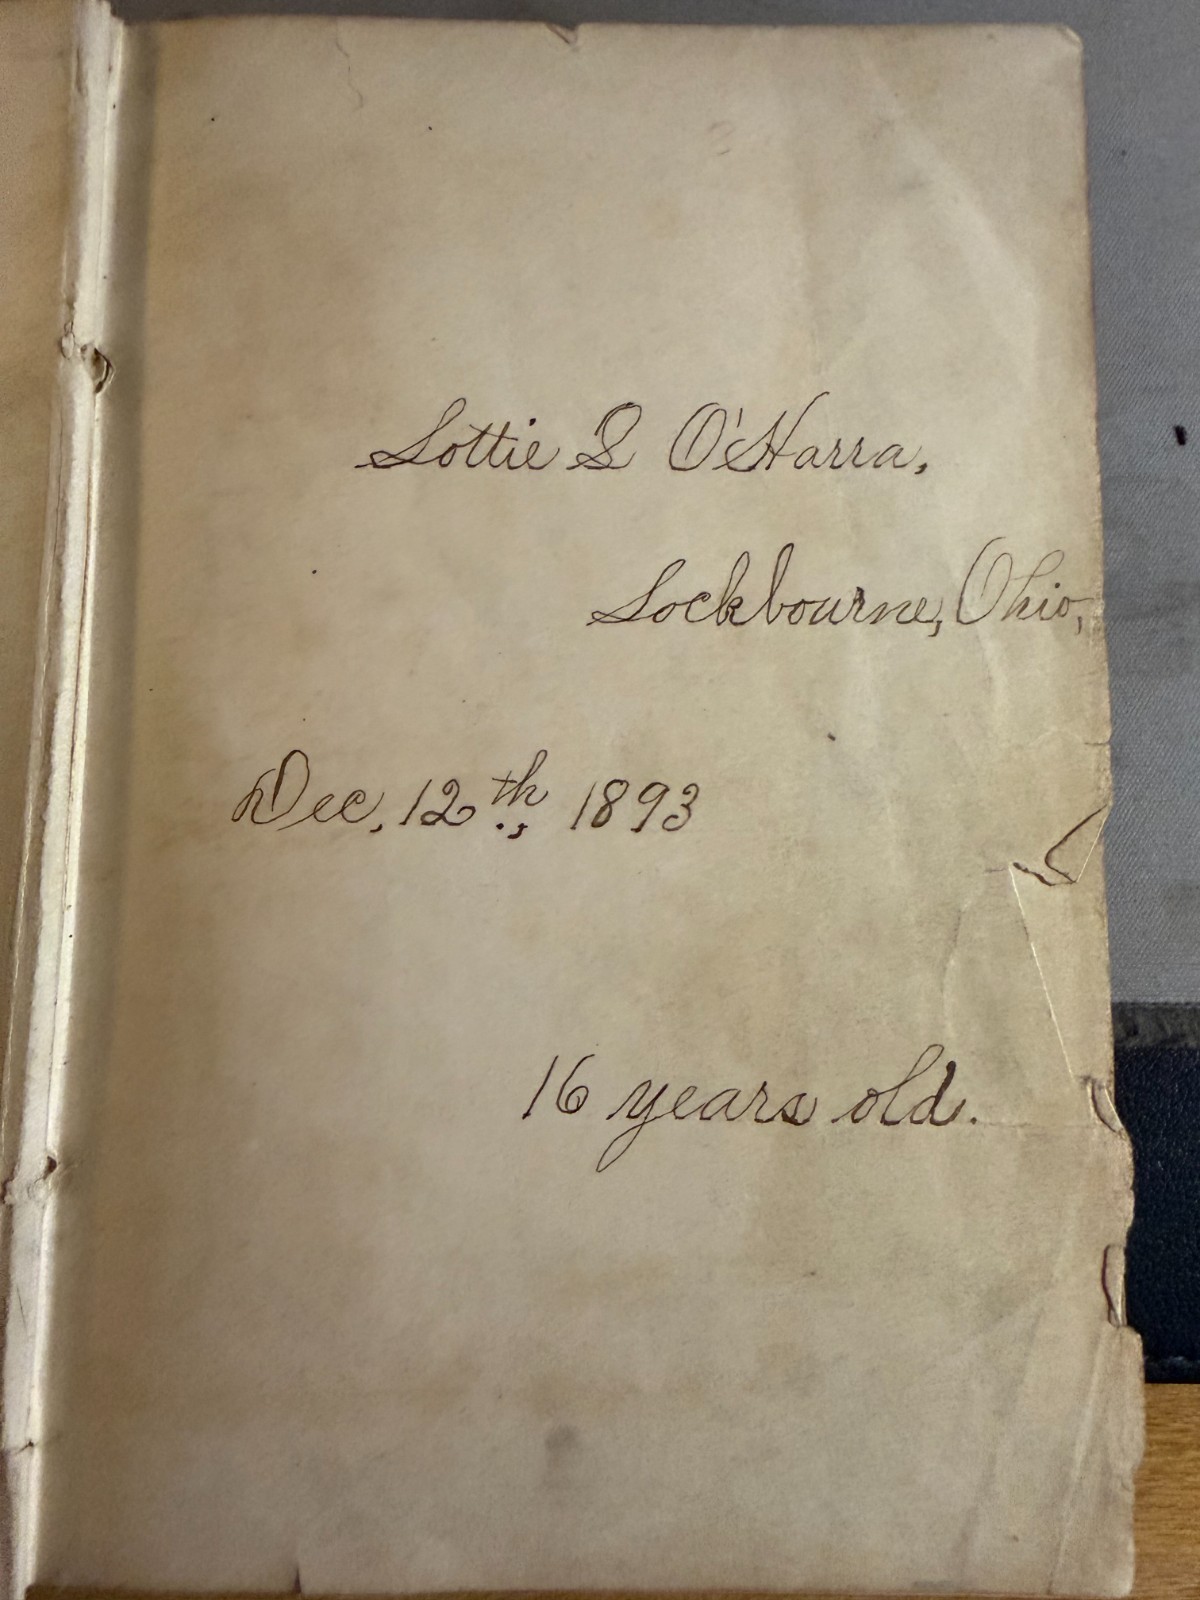 Lottie S O'Harra,
Lockbourne, Ohio,
Dec, 12th., 1893
16 years old.